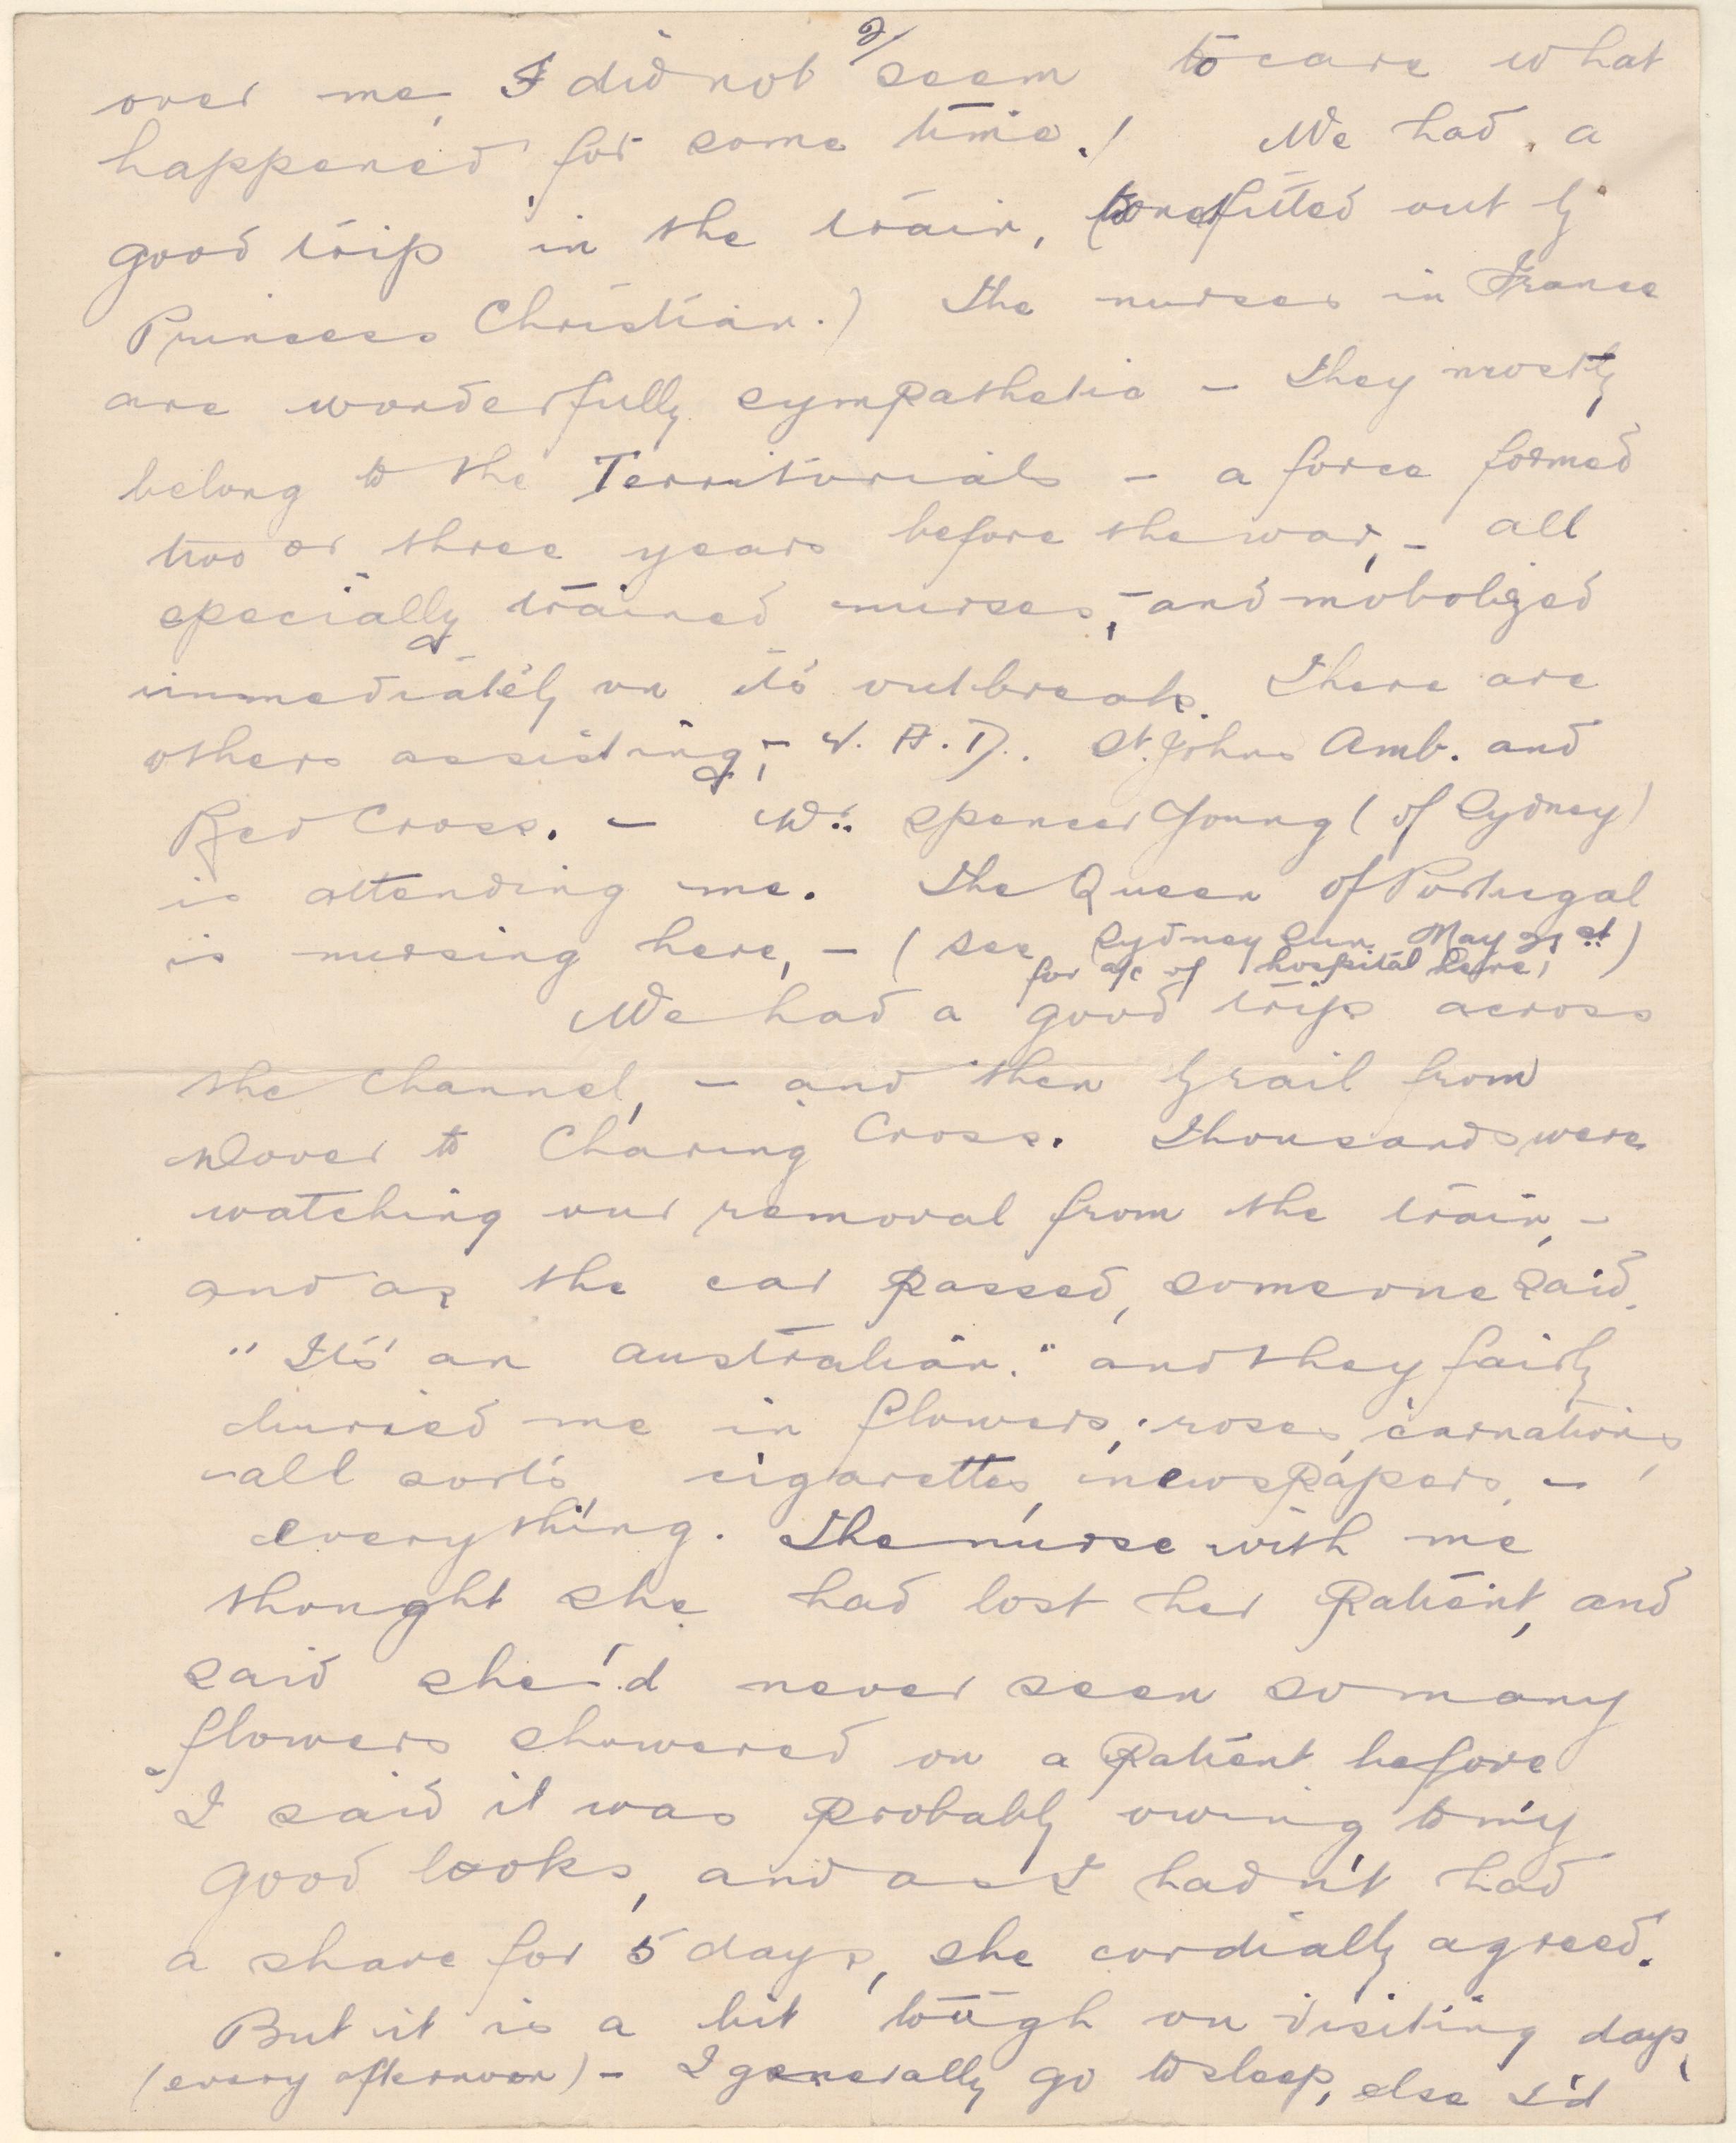 2/
over me, I did not seem to care what
happened for some time! We had a
good trip in the train, (one fitted out by
Princess Christian.) The nurses in France
are wonderfully sympathetic - they mostly
belong to the Territorials - a force formed
two or three years before the war, - all
specially trained nurses, - and mobolized
immediately on its outbreak. There are
others assisting, - V.A.D. St. Johns Amb. and
Red Cross. - Dr. Spencer Young (of Sydney)
is attending me. The Queen of Portugal
is nursing here, - (see Sydney Sun. May 21st)
for a/c of hospital here,
We had a good trip across
the Channel, - and then by rail from
Dover to Charing Cross. Thousands were
watching our removal from the train, -
and as the car passed, someone said,
"It's an Australian." and they fairly
buried me in flowers, roses, carnations,
all sorts, cigarettes, newspapers, -
everything. The nurse with me
thought she had lost her patient, and
said she'd never seen so many
flowers showered on a patient before
I said it was probably owing to my
good looks, and as I hadn't had
a shave for 5 days, she cordially agreed.
But it is a bit tough on visiting days,
(every afternoon) - I generally go to sleep, else I'd